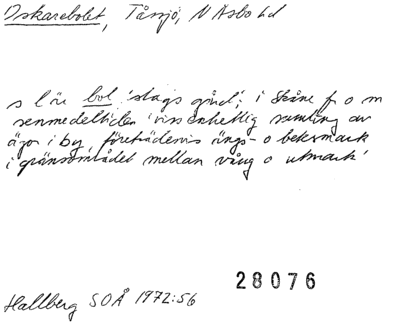 Oskarebolet, Tåssjö, N Åsbo hd
s l öre bol 'slags gård'; i Skåne fr o m
senmedeltiden 'viss enhetlig samling av
ägor i by, företrädesvis ängs- o betesmark
i gränsområdet mellan vång o utmark'
28076
Hallberg SOÅ 1972:56